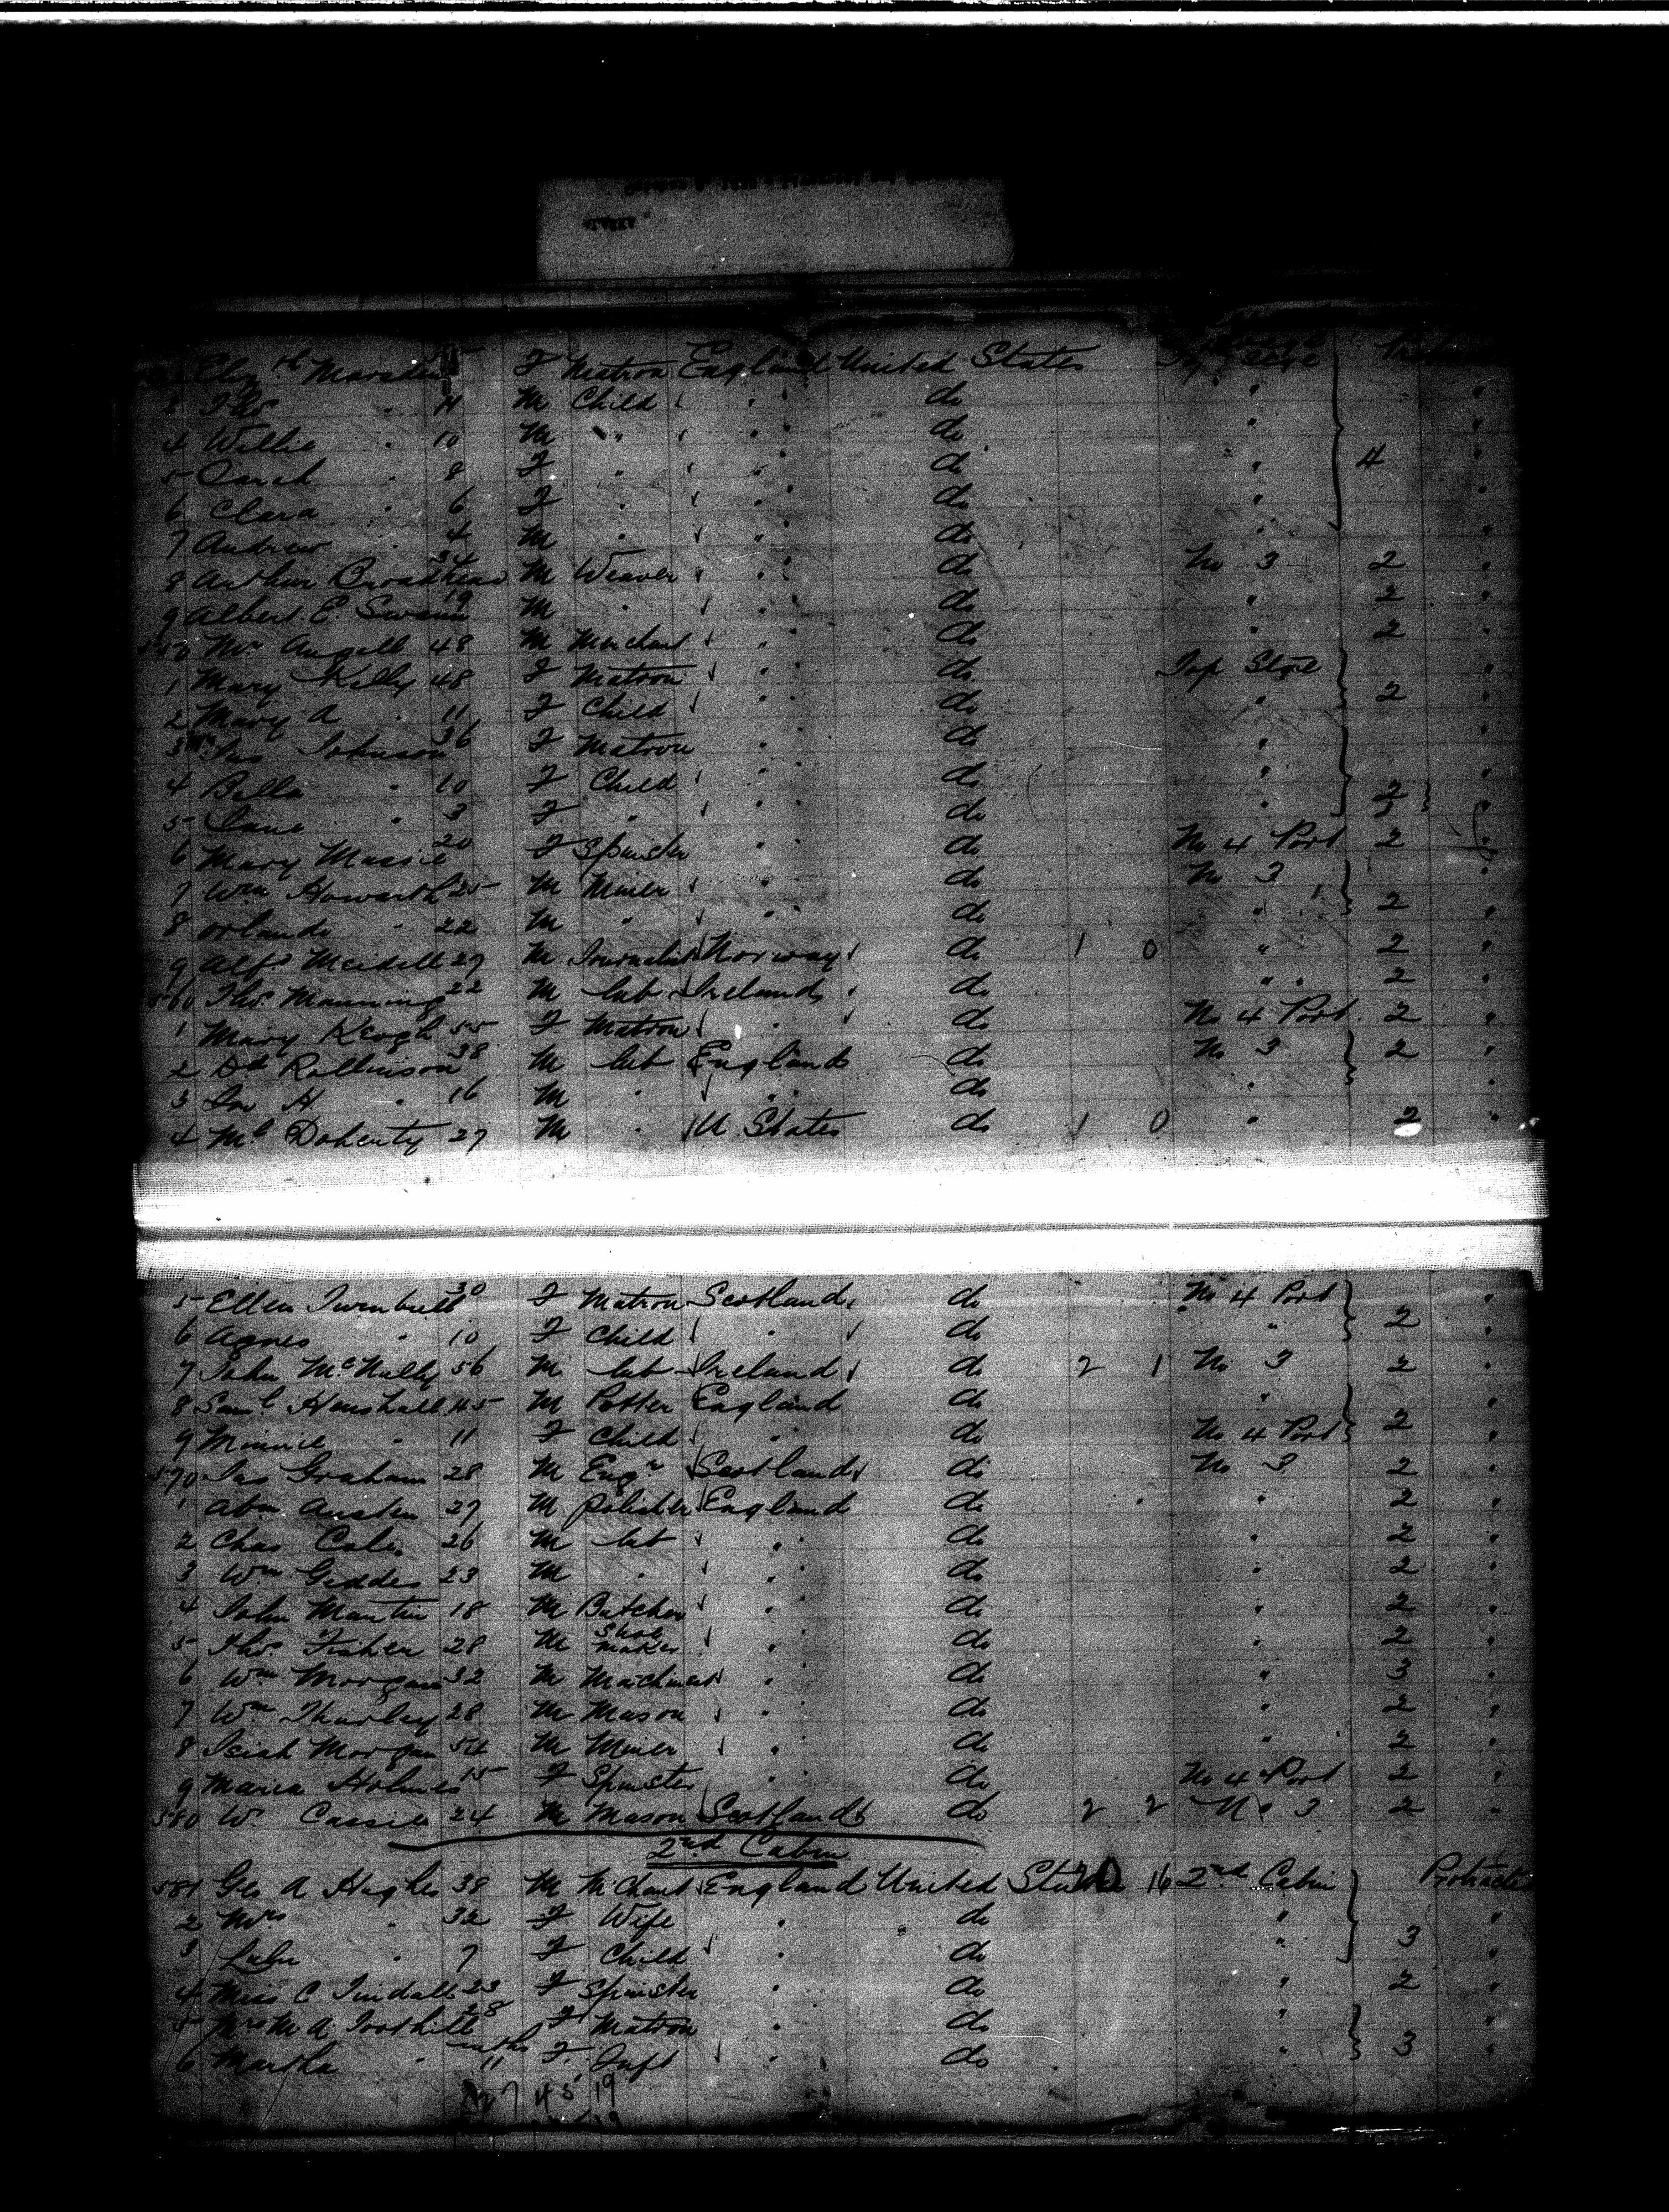 Elizth Marsden F Matron England United States
3 Thos " 11 M Child " do "
4 Willie " 10 M " " do "
5 Sarah " 8 F " " do " 4 "
6 Clara " 6 F " " do "
7 Andrew " 4 M " " do "
8 Arthur Broadhead 34 M Weaver " do No 3 2 "
9 Albert E. Swann 19 M " " do " 2 "
550 Mr Angell 48 M Merchant " do " 2
1 Mary Kelly 48 F Matron " do Top Stge "
2 Mary A " 11 F Child " do " 2 "
3 Mrs Jas Johnson 36 F Matron " do "
4 Bella " 10 F Child " do " 2 "
5 Jane " 3 F " " do " "
6 Mary Massie 20 F Spinster " do No 4 Port 2 "
7 Wm Howarth 25 M Miner " do No 3 "
8 Orlando " 22 M " " do " 2 "
9 Alfd Meidell 27 M Journalist Norway do 1 0 " 2 "
560 Thos. Manning 22 M Lab Ireland do " 2 "
1 Mary Keogh 55 F Matron " do No 4 Port 2 "
2 Dd Rollinson 38 M Lab England do No 3 2 "
3 Jno H " 16 M " " do " "
4 Ml Doherty 27 M " U. States do 1 0 " 2 "
5 Ellen Turnbull 30 F Matron Scotland do No 4 Port "
6 Agnes " 10 F Child " do " 2 "
7 John McNulty 56 M Lab Ireland do 2 1 No 3 2 "
8 Saml Henshall 45 M Potter England do " "
9 Minnie " 11 F Child " do No 4 Port 2 "
570 Jas Graham 28 M Engr Scotland do No 3 2 "
1 Abm Austen 27 M Polisher England do " 2 "
2 Chas 26 M Lab " do " 2 "
3 Wm Geddes 23 M " " do " 2
4 John Martin 18 M Butcher " do " 2 "
5 Thos. Fisher 28 M Shoe maker " do " 2 "
6 Wm Morgan 32 M Machinist " do " 3 "
7 Wm Thurley 28 M Mason " do " 2 "
8 Isiah Morgan 54 M Miner " do " 2 "
9 Maria Holmes 15 F Spinster " do No 4 Port 2 "
580 W. Cassie 24 M Mason Scotland do 2 2 No 3 2 "
2nd Cabin
581 Geo A Hughes 38 M Mchant England United States 20 16 2nd Cabin Protracted
2 Mrs " 32 F Wife " do " "
3 " 7 F Child " do " 3 "
4 Miss C Tindall 23 F Spinster " do " 2 "
5 Mrs M A Toothill 28 F Matron " do " "
6 Martha " mths 11 F Inft " do " 3 "
27 45 19